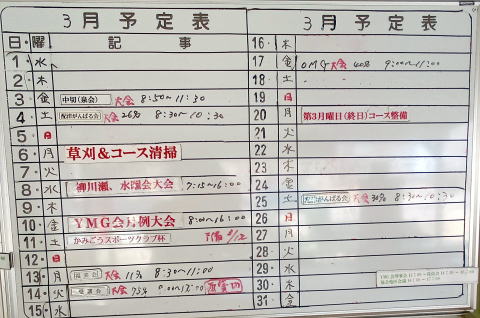 3月予定表
日・曜 記事
1・水
2・木
3・金 中切(泉会) 大会 8:50~11:30
4・土 大会 26% 8:30~10:30
5・日
6・月 草刈&コース清掃
7・火
8・水 柳川瀬、水曜会大会 7:15~16:00
9・木
10・金 YMG会月例大会 8:00~16:00
11・土 かみごうスポーツクラブ杯
12・日
13・月 大会 11% 8:30~11:00
14・火 大会
15・水
3月予定表
16・木
17・金 OMG大会 40% 9:00~11:00
18・土
19・日
20・月 第3月曜日(終日)コース整備
21・火
22・水
23・木
24・金
25・土 がんばる会 大会 30% 8:30~10:30
26・日
27・月
28・火
29・水
30・木
31・金